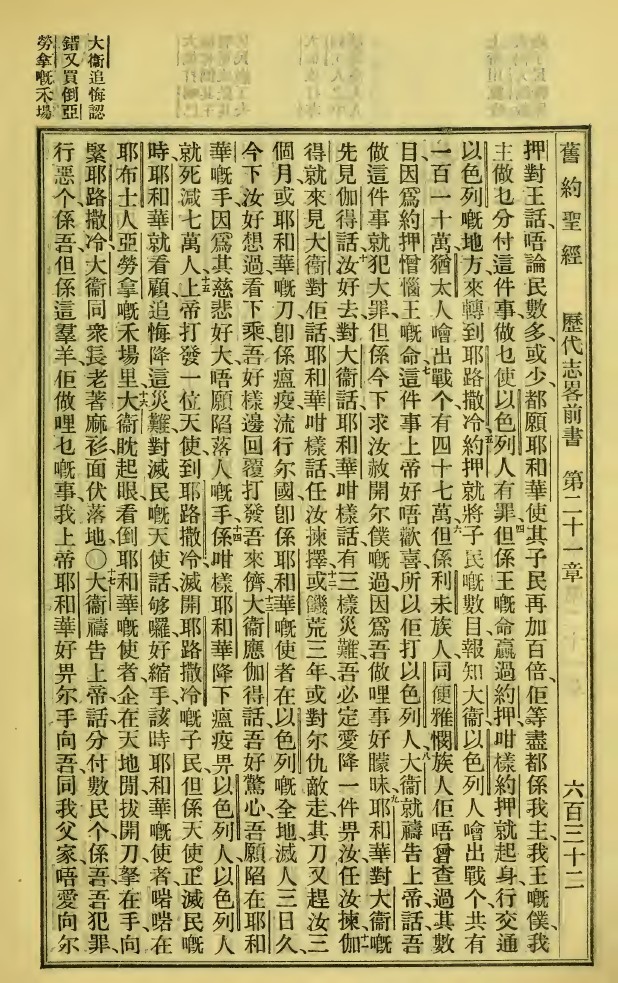 舊約聖經　歷代志畧前書　第二十一章　六百三十二
押對王話、唔論民數多、或少、都願耶和華使其子民再加百倍、佢等盡都係我主、我王嘅僕、我
主做乜分付這件事、做乜使以色列人有罪、但係王嘅命贏過約押、咁樣約押就起身、行交通
以色列嘅地方、來轉到耶路撒冷、約押就將子民嘅數目、報知大衞、以色列人噲出戰个共有
一百一十萬、猶太人噲出戰个有四十七萬、但係利未族人、同便雅憫族人、佢唔曾查過其數
目、因爲約押憎惱王嘅命、這件事上帝好唔歡喜、所以佢打以色列人、大衞就禱告上帝話、吾
做這件事、就犯大罪、但係今下求汝赦開尔僕嘅過、因爲吾做哩事好矇昧、耶和華對大衞嘅
先見伽得話、汝好去對大衞話、耶和華咁樣話、有三樣災難、吾必定愛降一件畀汝、任汝揀、伽
得就來見大衞、對佢話、耶和華咁樣話、任汝揀擇、或饑荒三年、或對尔仇敵走、其刀又趕汝三
個月、或耶和華嘅刀、卽係瘟疫流行尔國、卽係耶和華嘅使者、在以色列嘅全地滅人三日久、
今下汝好想過看下乘、吾好樣邊回覆打發吾來儕、大衞應伽得話、吾好驚心、吾願陷在耶和
華嘅手、因爲其慈悲好大、唔願陷落人嘅手、係咁樣耶和華降下瘟疫畀以色列人、以色列人
就死減七萬人、上帝打發一位天使到耶路撒冷、滅開耶路撒冷嘅子民、但係天使正滅民嘅
時、耶和華就看顧、追悔降這災難、對滅民嘅天使話、够囉、好縮手、該時耶和華嘅使者啱啱在
耶布士人亞勞拿嘅禾場里、大衞眈起眼看倒耶和華嘅使者、企在天地閒、拔開刀拏在手、向
緊耶路撒冷、大衞同衆長老著麻衫、面伏落地、〇大衞禱告上帝話、分付數民个係吾、吾犯罪、
行惡个係吾、但係這羣羊、佢做哩乜嘅事、我上帝耶和華、好畀尔手向吾、同我父家、唔愛向尔
大衞追悔認
錯又買倒亞
勞拿嘅禾場